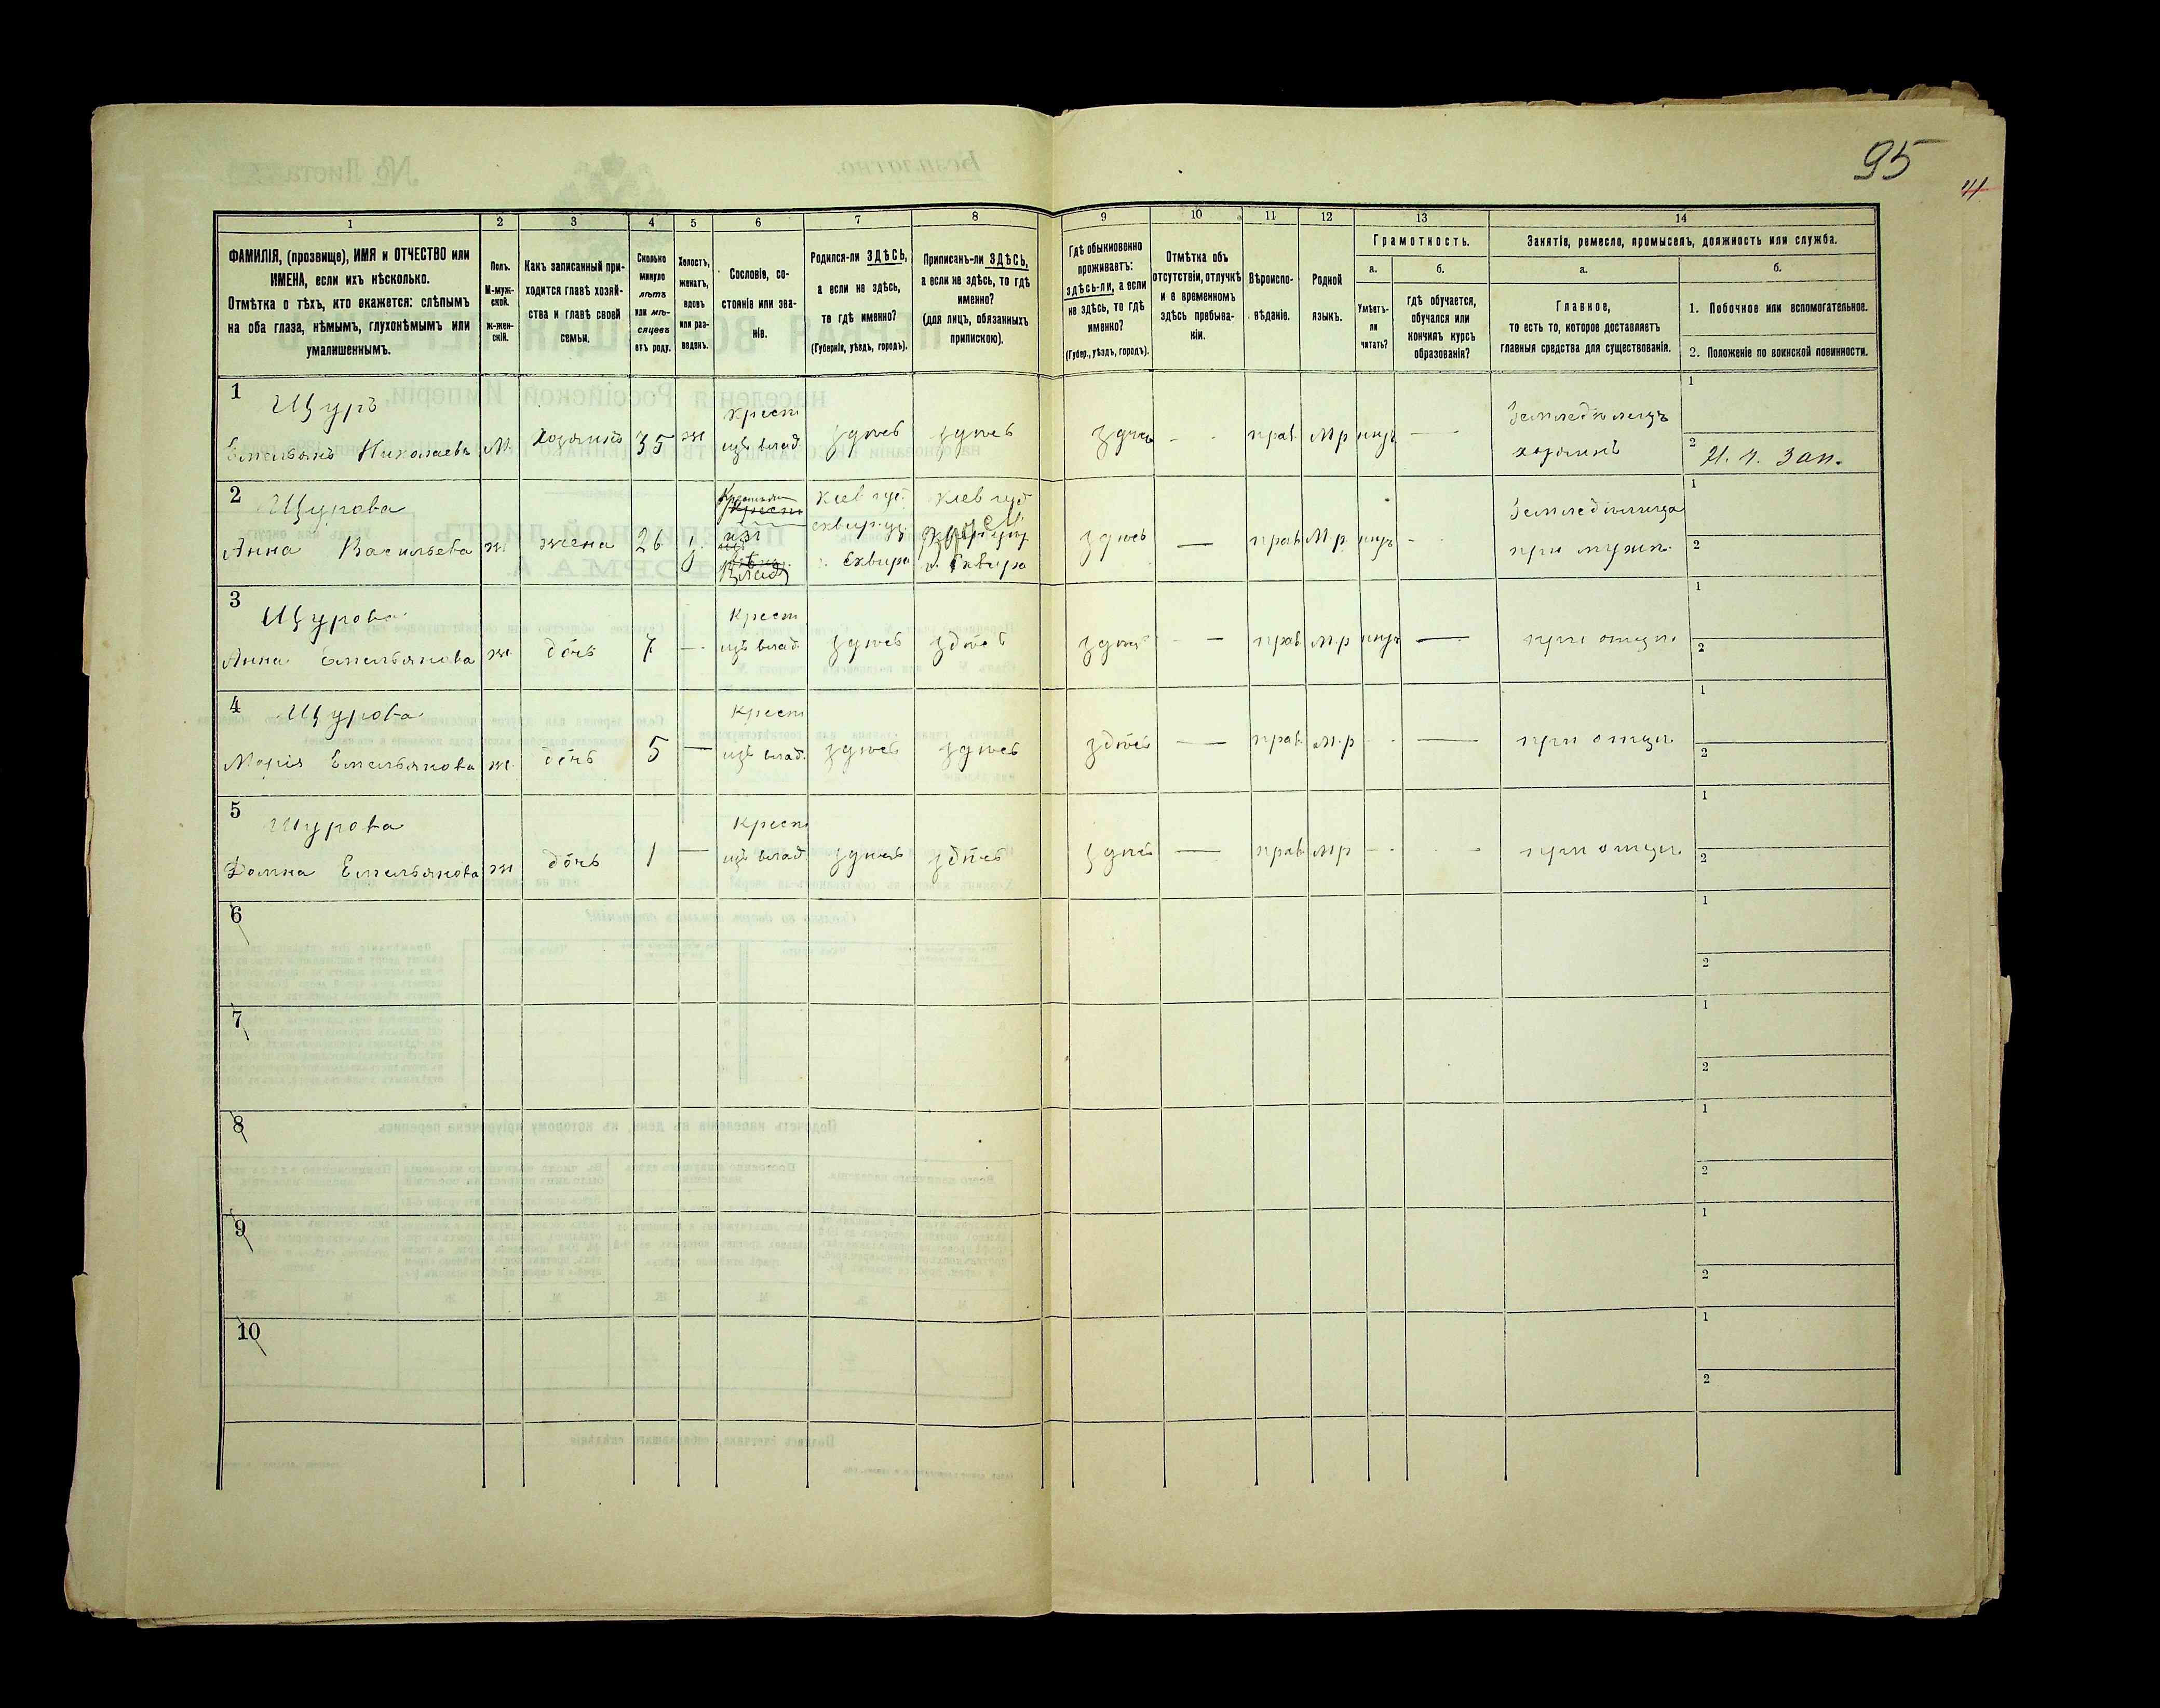 95
1 2 3 4 5 6 7 8 9 10 11 12 13 14
ФАМИЛІЯ, (прозвище), ИМЯ и ОТЧЕСТВО или
ИМЕНА, если ихъ нѣсколько.
Отмѣтка о тѣхъ, кто окажется: слѣпымъ
на оба глаза, нѣмымъ, глухонѣмымъ или
умалишеннымъ.
Полъ.
М-муж-
ской.
Ж-жен-
скій.
Какъ записанный при-
ходится главѣ хозяй-
ства и главѣ своей
семьи.
Сколько
минуло
лѣтъ
или мѣ-
сяцевъ
отъ роду.
Холостъ,
женатъ,
вдовъ
или раз-
веденъ.
Сословіе, со-
стояніе или зва-
ніе.
Родился-ли ЗДѢСЬ,
а если не здѣсь,
то гдѣ именно?
(Губернія, уѣздъ, городъ).
Приписанъ-ли ЗДѢСЬ,
а если не здѣсь, то гдѣ
именно?
(для лицъ, обязанныхъ
припискою).
Гдѣ обыкновенно
проживаетъ:
здѣсь-ли, а если
не здѣсь, то гдѣ
именно?
(Губер., уѣздъ, городъ).
Отмѣтка объ
отсутствіи, отлучкѣ
и о временномъ
здѣсь пребыва-
ніи.
Вѣроиспо-
вѣданіе.
Родной
языкъ.
Грамотность.
а.
б.
Умѣетъ-
ли
читать?
гдѣ обучается,
обучался или
кончилъ курсъ
образованія?
Занятіе, ремесло, промыселъ, должность или служба.
а.
б.
Главное,
то есть то, которое доставляетъ
главныя средства для существованія.
1. Побочное или вспомогательное.
2. Положеніе по воинской повинности.
1
Щуръ
Емельянъ Николаевъ М. хозяинъ 35 ж
Крест
изъ влад. здѣсь здѣсь здѣсь - прав. Мр нѣтъ —
Земледѣлецъ
хозяинъ
1
2
2
Щурова
Анна Васильева ж жена 26
изъ
влад
Кіев губ.
сквир. уѣ.
Сквира
Кіев губ
Сквира
здѣсь — прав. Мр. нѣтъ -
Земледѣлица
при мужѣ.
1
2
3
Щурова
Анна Емельянова ж дочь 7 —
Крест
изъ влад. здѣсь здѣсь здѣсь — прав М.р нѣтъ — при отцѣ.
1
2
4
Щурова
Марія Емельянова ж. дочь 5 —
Крест
изъ влад. здѣсь здѣсь здѣсь — прав. М.р — при отцѣ
1
2
5
Щурова
Домна Емельянова ж дочь 1 —
Крест
изъ влад здѣсь здѣсь здѣсь — прав. Мр - при отцѣ.
1
2
6
1
2
7
1
2
8
1
2
9
1
2
10
1
2